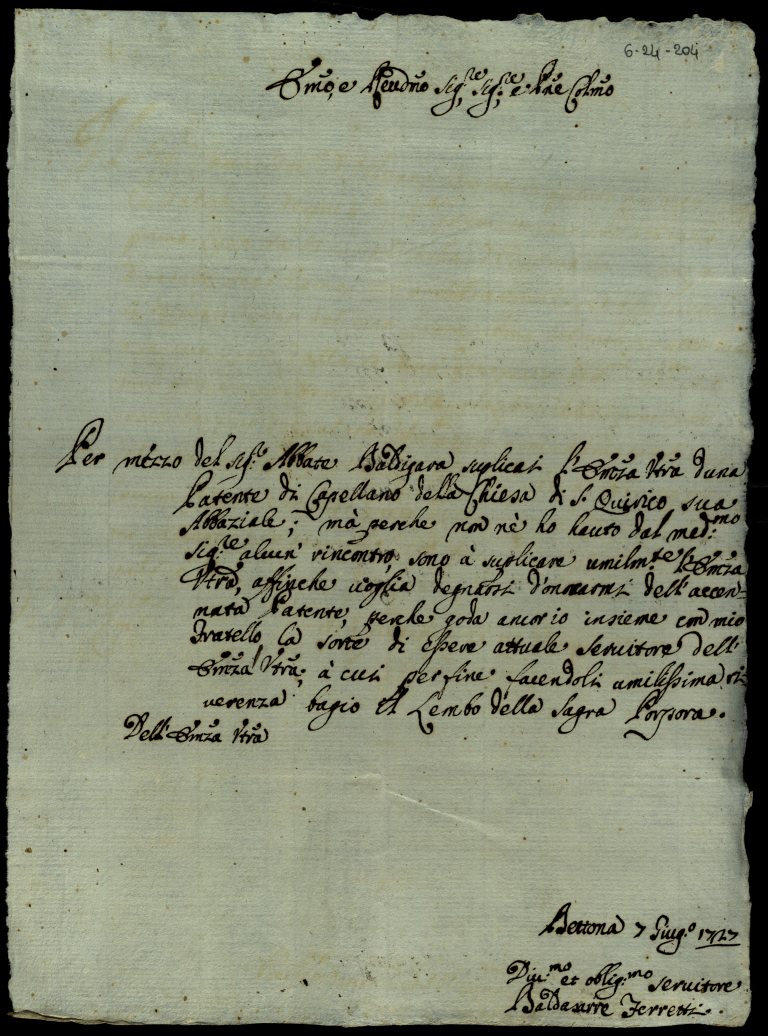 6-24-204
Emo, e Reudmo Sig.re Sig.re e Pne Colmo
Per mezzo del sig.r Abbate Baldigara suplicai l'Emza Vtra duna
Patente di Capellano della Chiesa di S. Quirico sua
Abbaziale; mà perche non nè ho hauto dal med:mo
Sig:re alcun' rincontro, sono à suplicare umilm:te l'Emza
Vtra, affinche uoglia degnarsi d'onorarmi dell'accen-
nata Patente, perche goda ancor io insieme con mio
Fratello la sorte di Essere attuale Seruitore dell'
Emza Vtra; à cui per fine facendoli umilissima ri-
uerenza bagio il Lembo della Sagra Porpora.
Dell'Emza Vtra
Bettona 7 Giug.o 1727
Diu:mo et oblig:mo seruitore
Baldasarre Ferretti.